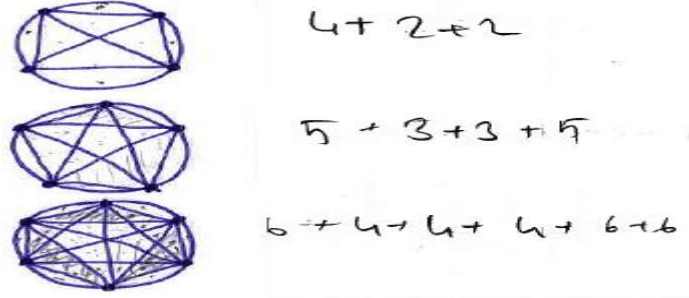 4+ 2+2
5 + 3+3 + 5
6 + 4+ 4+ 4+ 6+6